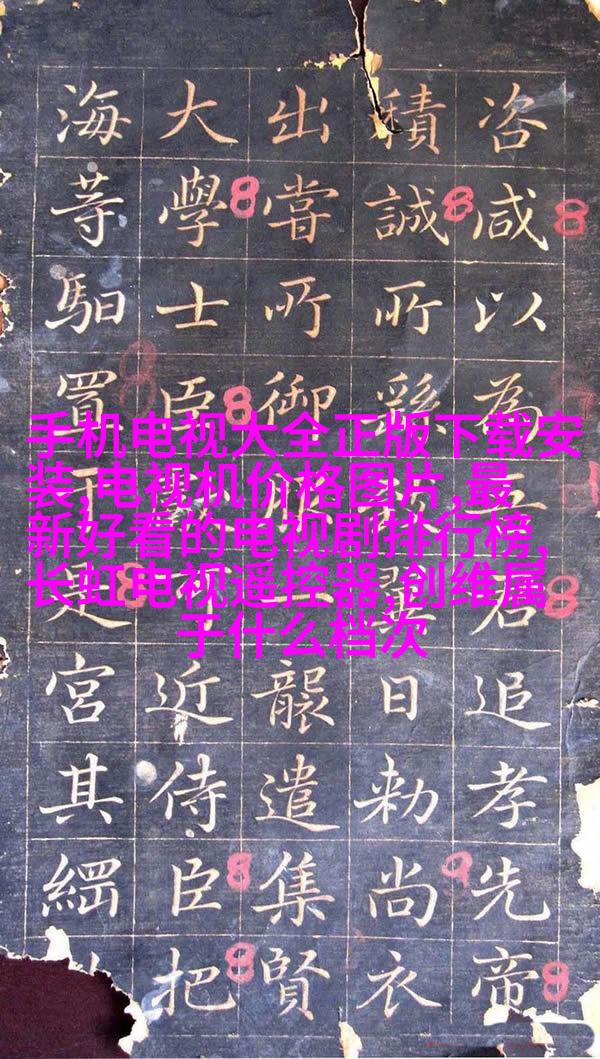 咨咸以為吾君追孝先帝
積誠所翌日勅尚衣
出嘗所御服一襲遣集賢
大學士臣近侍臣把
海等馹置是宮其
手机电视大全正版下载安
装,电视机价格图片,最
新好看的电视剧排行榜,
长虹电视遥控器,创维属
于什么档次